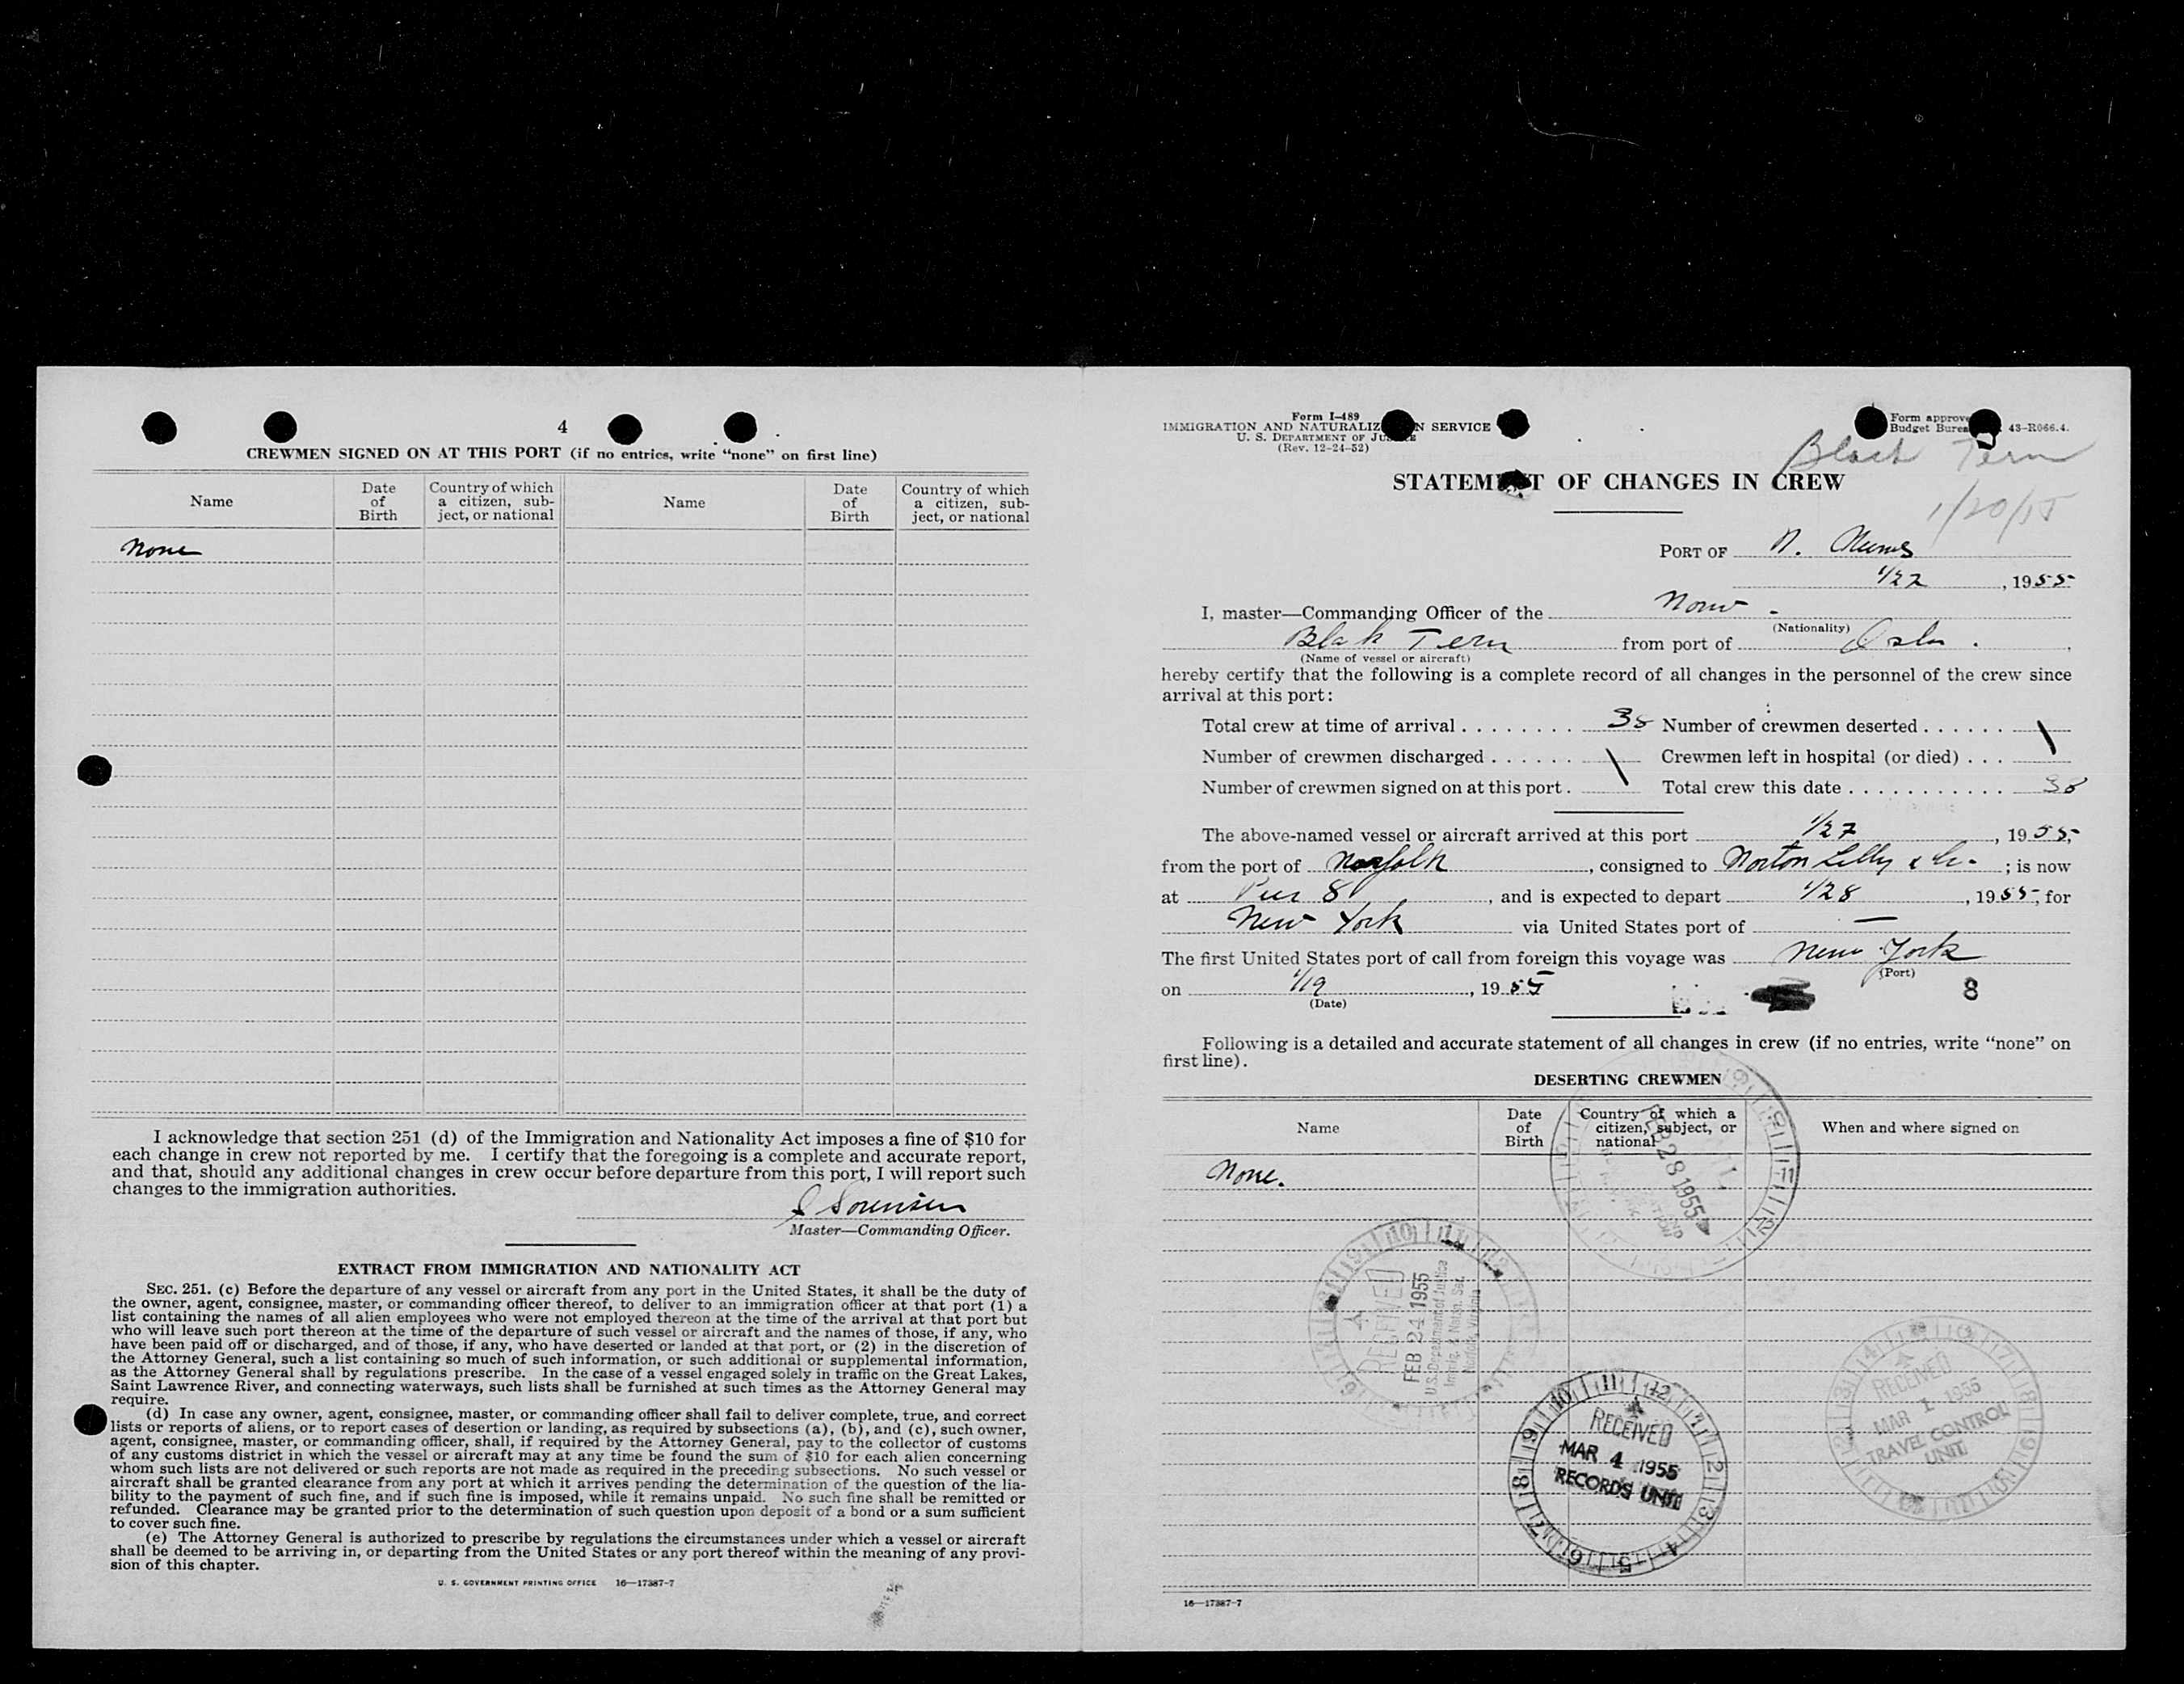 4
CREWMEN SIGNED ON AT THIS PORT (if no entries, write “none” on first line)
Name
Date of Birth
Country of which a citizen, subject, or national
Name
Date of Birth
Country of which a citizen, subject, or national
None
I acknowledge that section 251 (d) of the Immigration and Nationality Act imposes a fine of $10 for
each change in crew not reported by me. I certify that the foregoing is a complete and accurate report,
and that, should any additional changes in crew occur before departure from this port, I will report such
changes to the immigration authorities.
Sorensen
Master—Commanding Officer.
EXTRACT FROM IMMIGRATION AND NATIONALITY ACT
SEC. 251. (c) Before the departure of any vessel or aircraft from any port in the United States, it shall be the duty of
the owner, agent, consignee, master, or commanding officer thereof, to deliver to an immigration officer at that port (1) a
list containing the names of all alien employees who were not employed thereon at the time of the arrival at that port but
who will leave such port thereon at the time of the departure of such vessel or aircraft and the names of those, if any, who
have been paid off or discharged, and of those, if any, who have deserted or landed at that port, or (2) in the discretion of
the Attorney General, such a list containing so much of such information, or such additional or supplemental information,
as the Attorney General shall by regulations prescribe. In the case of a vessel engaged solely in traffic on the Great Lakes,
Saint Lawrence River, and connecting waterways, such lists shall be furnished at such times as the Attorney General may
require.
(d) In case any owner, agent, consignee, master, or commanding officer shall fail to deliver complete, true, and correct
lists or reports of aliens, or to report cases of desertion or landing, as required by subsections (a), (b), and (c), such owner,
agent, consignee, master, or commanding officer, shall, if required by the Attorney General, pay to the collector of customs
of any customs district in which the vessel or aircraft may at any time be found the sum of $10 for each alien concerning
whom such lists are not delivered or such reports are not made as required in the preceding subsections. No such vessel or
aircraft shall be granted clearance from any port at which it arrives pending the determination of the question of the lia-
bility to the payment of such fine, and if such fine is imposed, while it remains unpaid. No such fine shall be remitted or
refunded. Clearance may be granted prior to the determination of such question upon deposit of a bond or a sum sufficient
to cover such fine.
(e) The Attorney General is authorized to prescribe by regulations the circumstances under which a vessel or aircraft
shall be deemed to be arriving in, or departing from the United States or any port thereof within the meaning of any provi-
sion of this chapter.
U. S. GOVERNMENT PRINTING OFFICE 16—17387-7
Form I-489
IMMIGRATION AND NATURALIZ N SERVICE
U. S. DEPARTMENT OF JUSTICE
(Rev. 12-24-52)
Form approve
Budget Burea 43-R066.4.
Black Tern
1/20/55
STATEMENT OF CHANGES IN CREW
PORT OF N. News
1/27, 1955
I, master—Commanding Officer of the Norw -
(Nationality)
Blak Tern from port of Oslo .
(Name of vessel or aircraft)
hereby certify that the following is a complete record of all changes in the personnel of the crew since
arrival at this port:
Total crew at time of arrival 38 Number of crewmen deserted \
Number of crewmen discharged \ Crewmen left in hospital (or died)
Number of crewmen signed on at this port Total crew this date 38
The above-named vessel or aircraft arrived at this port 1/27, 1955,
from the port of Norfolk, consigned to Norton Lilly & Co. ; is now
at Pier 8, and is expected to depart 1/28, 1955, for
New York via United States port of —
The first United States port of call from foreign this voyage was New York
(Port)
on 1/19, 1955
(Date)
8
Following is a detailed and accurate statement of all changes in crew (if no entries, write “none” on
first line).
DESERTING CREWMEN
Name
Date of Birth
Country of which a citizen, subject, or national
When and where signed on
None.
FEB 28 1955
RECEIVED
FEB 24 1955
U.S. Department of Justice
Immig. & Natzn. Ser.
Norfolk, Virginia
RECEIVED
MAR 4 1955
RECORDS UNIT
RECEIVED
MAR 1 1955
TRAVEL CONTROL
UNIT.
16—17387-7